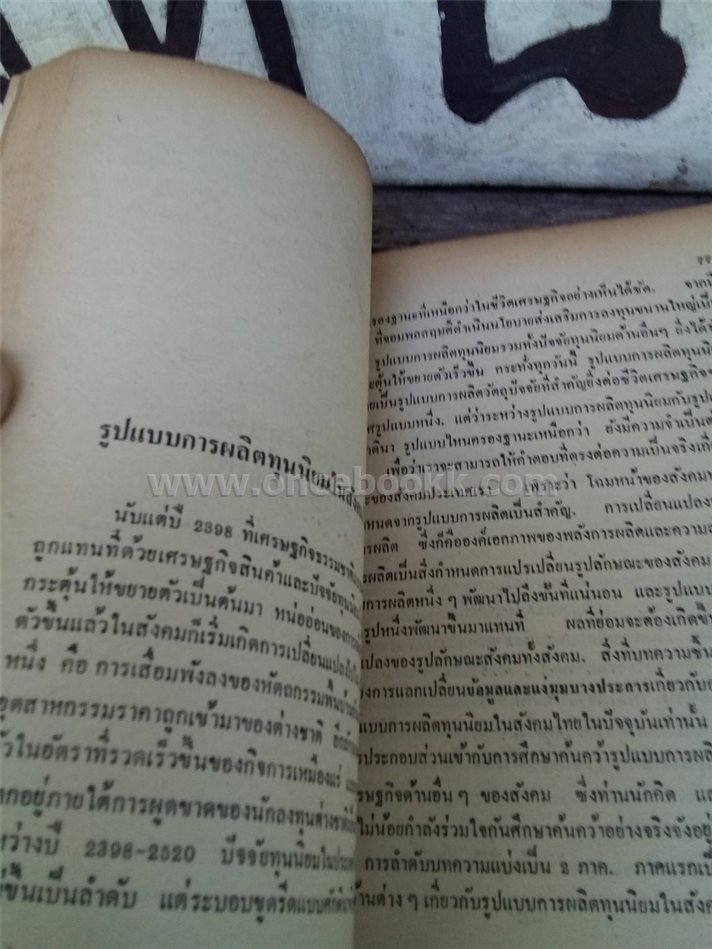 รูปแบบการผลิตทุนนิยมในสังคม
นับแต่ปี 2398 ที่เศรษฐกิจธรรมชาติ
ถูกแทนที่ด้วยเศรษฐกิจสินค้าและปัจจัยทุนนิยม
กระตุ้นให้ขยายตัวเป็นต้นมา หน่ออ่อนของการ
ตัวขึ้นแล้วในสังคมก็เริ่มเกิดการเปลี่ยนแปลง
หนึ่ง คือ การเสื่อมพังลงของหัตถกรรมพื้นบ้าน
อุตสาหกรรมราคาถูกเข้ามาของต่างชาติ
ตัวในอัตราที่รวดเร็วขึ้นของกิจการเหมืองแร่
กอยู่ภายใต้การผูกขาดของนักลงทุนต่างชาติ
หว่างปี 2398-2520 ปัจจัยทุนนิยมใน
ขึ้นเป็นลำดับ แต่ระบอบขูดรีดแบบศักดินา
รองฐานะที่เหนือกว่าในชีวิตเศรษฐกิจอย่างเห็นได้ชัด.
ที่จอมพลสฤษดิ์ดำเนินนโยบายส่งเสริมการลงทุนขนานใหญ่
รูปแบบการผลิตทุนนิยมรวมทั้งปัจจัยทุนนิยมด้านอื่นๆ ยิ่งได้
ะตุ้นให้ขยายตัวเร็วขึ้น กระทั่งทุกวันนี้ รูปแบบการผลิตทุนนิ
ยเป็นรูปแบบการผลิตวัตถุปัจจัยที่สำคัญยิ่งต่อชีวิตเศรษฐกิจ
รูปแบบหนึ่ง. แต่ว่าระหว่างรูปแบบการผลิตทุนนิยมกับรูปแ
ดินา รูปแบบไหนครองฐานะเหนือกว่า ยังมีความจำเป็น
เพื่อว่าเราจะสามารถให้คำตอบที่ตรงต่อความเป็นจริง
ะของสังคมประเทศเรา เพราะว่า โฉมหน้าของสังคม
หนดจากรูปแบบการผลิตเป็นสำคัญ. การเปลี่ยนแปลง
ารผลิต ซึ่งก็คือองค์เอกภาพของพลังการผลิตและความ
ผลิตเป็นสิ่งกำหนดการแปรเปลี่ยนรูปลักษณะของสังคม
การผลิตหนึ่ง ๆ พัฒนาไปถึงขั้นที่แน่นอน และรูปแบบ
รูปหนึ่งพัฒนาขึ้นมาแทนที่ ผลที่ย่อมจะต้องเกิดขึ้
แปลงของรูปลักษณะสังคมทั้งสังคม. สิ่งที่บทความชิ้น
งการแลกเปลี่ยนข้อมูลและแง่มุมบางประการเกี่ยวกับ
แบบการผลิตทุนนิยมในสังคมไทยในปัจจุบันเท่านั้น
ประกอบส่วนเข้ากับการศึกษาค้นคว้ารูปแบบการผลิ
รษฐกิจด้านอื่น ๆ ของสังคม ซึ่งท่านนักคิด
ไม่น้อยกำลังร่วมใจกันศึกษาค้นคว้าอย่างจริงจังอยู่
การลำดับบทความแบ่งเป็น 2 ภาค. ภาคแรก
ด้านต่าง ๆ เกี่ยวกับรูปแบบการผลิตทุนนิยมในสังค
www.oncebookk.com